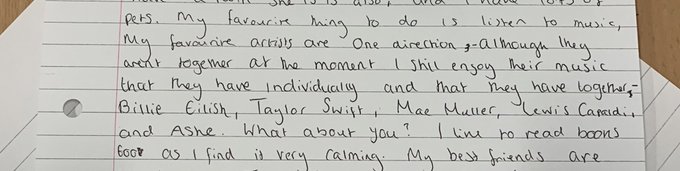 pets. My favourite thing to do is listen to music,
My favourite artists are One direction,-although they
arent together at the moment I still enjoy their music
that they have individually and that they have together,-
Billie Eilish, Taylor Swift, Mae Muller, Lewis Capaldi,
and Ashe. What about you? I like to read books
too as I find it very calming. My best friends are